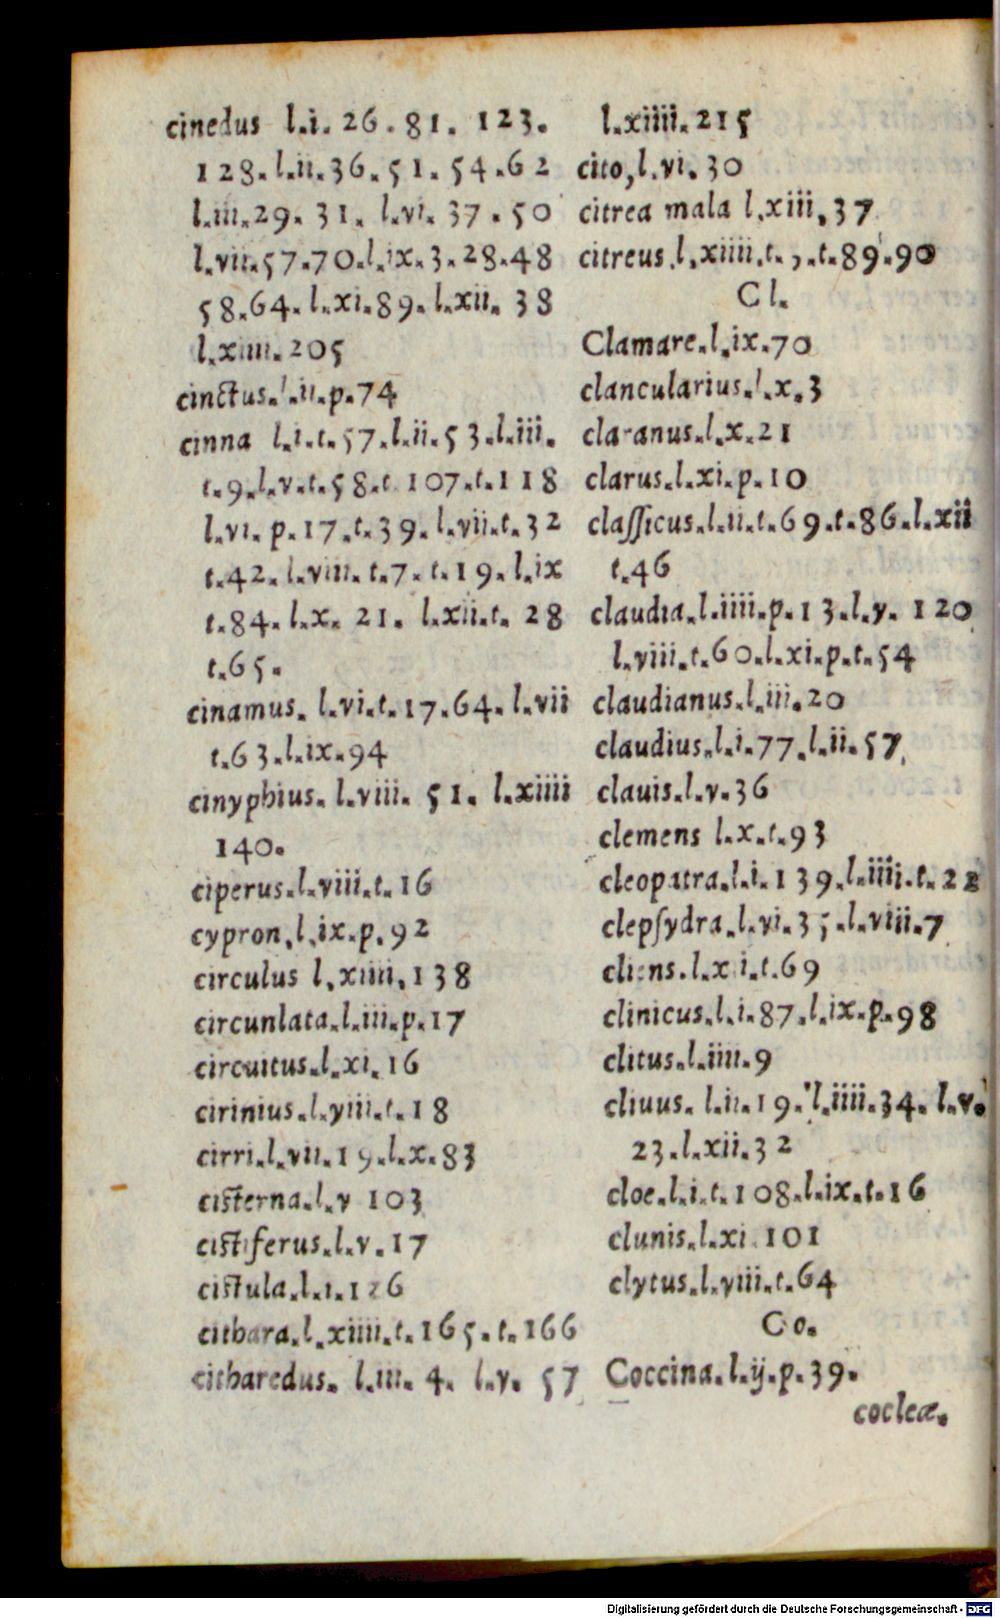 cinedus l.i. 26. 81. 123.
128. l.ii. 36. 51. 54. 62
l.iii. 29. 31. l.vi. 37. 50
l.vii. 57. 70. l.ix. 3. 28. 48
58. 64. l.xi. 89. l.xii. 38
l.xiiii. 205
cinctus. l.ii. p. 74
cinna l.i. t. 57. l.ii. 53. l.iii.
t. 9. l.v. t. 58. t. 107. t. 118
l.vi. p. 17. t. 39. l.vii. t. 32
t. 42. l.viii. t. 7. t. 19. l.ix
t. 84. l.x. 21. l.xii. t. 28
t. 65.
cinamus. l.vi. t. 17. 64. l.vii
t. 63. l.ix. 94
cinyphius. l.viii. 51. l.xiiii
140.
ciperus. l.viii. t. 16
cypron, l.ix. p. 92
circulus l.xiiii. 138
circunlata. l.iii. p. 17
circuitus. l.xi. 16
cirinius. l.viii. t. 18
cirri. l.vii. 19. l.x. 83
cisterna. l.v 103
cistiferus. l.v. 17
cistula. l.i. 126
cithara. l.xiiii. t. 165. t. 166
citharedus. l.iii. 4. l.v. 57
l.xiiii. 215
cito, l.vi. 30
citrea mala l.xiii. 37
citreus. l.xiiii. t. , . t. 89. 90
Cl.
Clamare. l.ix. 70
clancularius. l.x. 3
claranus. l.x. 21
clarus. l.xi. p. 10
claſſicus. l.ii. t. 69. t. 86. l.xii
t. 46
claudia. l.iiii. p. 13. l.v. 120
l.viii. t. 60. l.xi. p. t. 54
claudianus. l.iii. 20
claudius. l.i. 77. l.ii. 57
clauis. l.v. 36
clemens l.x. t. 93
cleopatra. l.i. 139. l.iiii. t. 22
clepſydra. l.vi. 35. l.viii. 7
cliens. l.xi. t. 69
clinicus. l.i. 87. l.ix. p. 98
clitus. l.iiii. 9
cliuus. l.ii. 19. l.iiii. 34. l.v.
23. l.xii. 32
cloe. l.i. t. 108. l.ix. t. 16
clunis. l.xi. 101
clytus. l.viii. t. 64
Co.
Coccina. l.ij. p. 39.
cocleæ.
Digitalisierung gefördert durch die Deutsche Forschungsgemeinschaft - DFG